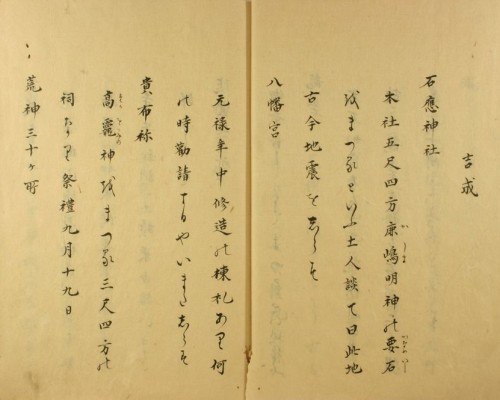 吉成
石應神社
本社五尺四方鹿嶋明神の要石
をまつるといふ土人談て曰此地
古今地震をしらす
八幡宮
元禄年中修造の棟札あり何
の時勧請すや いまたしらす
貴布祢
高龗神をまつる三尺四方の
祠なり祭禮九月十九日
荒神三十ヶ所